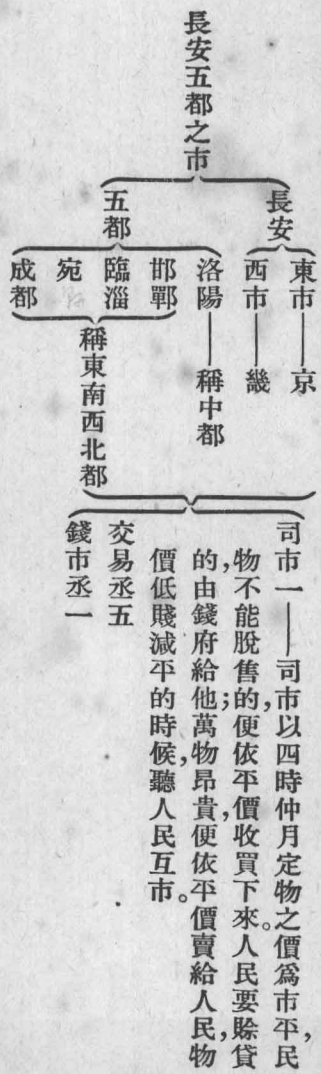 長安五都之市
長安
東市——京
西市——畿
五都
洛陽——稱中都
邯鄲
臨淄
宛
成都
稱東南西北都
司市一——司市以四時仲月定物之價爲市平，民
物不能脫售的，便依平價收買下來。人民要賒貸
的，由錢府給他；萬物昂貴，便依平價賣給人民，物
價低賤減平的時候，聽人民互市。
交易丞五
錢市丞一